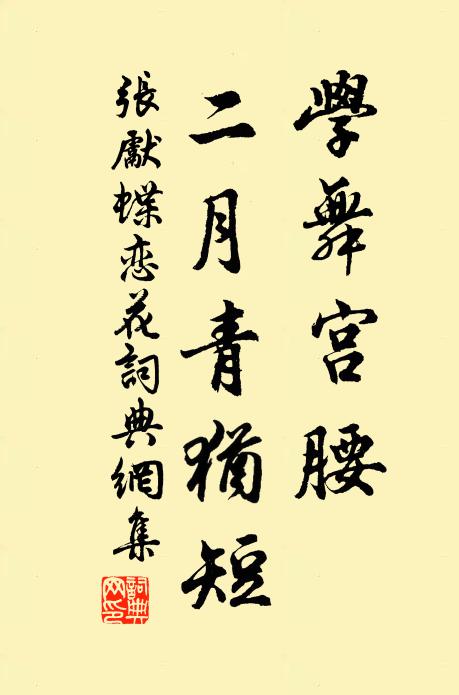 學舞宮腰
二月青猶短
張獻蝶恋花詞典網集
詞典網印